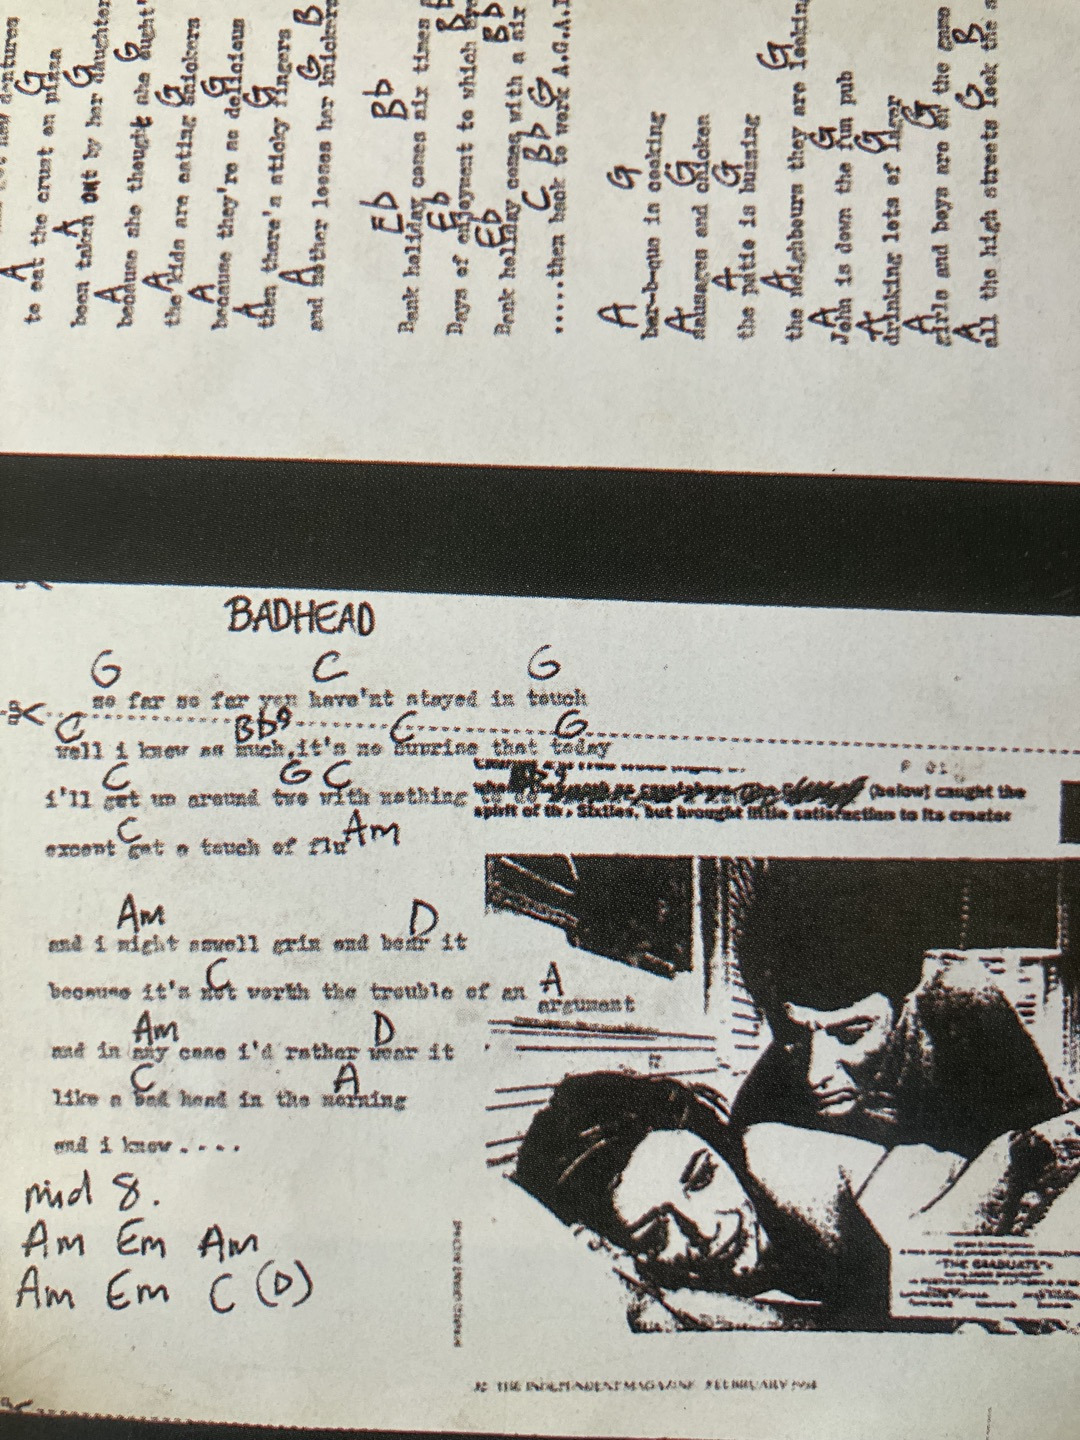 to eat the crust on pizza
A G
been taken out by her daughter
A G
because she thought she ought
A G
the kids are eating snickers
A G
because they're so delicious
A G
then there's sticky fingers
A G B
and mother looses her knickers
Eb Bb
Bank holiday comes six times
Eb Bb
Days of enjoyment to which
Eb Bb
Bank holiday comes with a six
C Bb G
.....then back to work A.G.A.I
A G
bar-b-que is cooking
A G
sausages and chicken
A G
the patio is buming
A G
the neighbours they are looking
A G
John is down the fun pub
A G
drinking lots of lager
A G
girls and boys are on the game
A G B
all the high streets look the
BADHEAD
G C G
so far so far you have'nt stayed in touch
C Bb9 C G
well i knew as much,it's no suprise that today
C G C
i'll get up around two with nothing to do
C Am
except get a touch of flu
(below) caught the
spirit of the Sixties, but brought little satisfaction to its creator
Am D
and i might aswell grin and bear it
C A
because it's not worth the trouble of an argument
Am D
and in any case i'd rather wear it
C A
like a bad head in the morning
and i know....
mid 8.
Am Em Am
Am Em C (D)
"THE GRADUATE"
THE INDEPENDENT MAGAZINE FEBRUARY